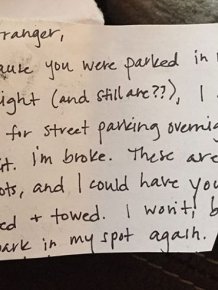 ranger,
ause you were parked in
ight (and still are??), I
for street parking overnig
t. i'm broke. These are
ots, and I could have you
ed + towed. I won't, b
ark in my spot again.